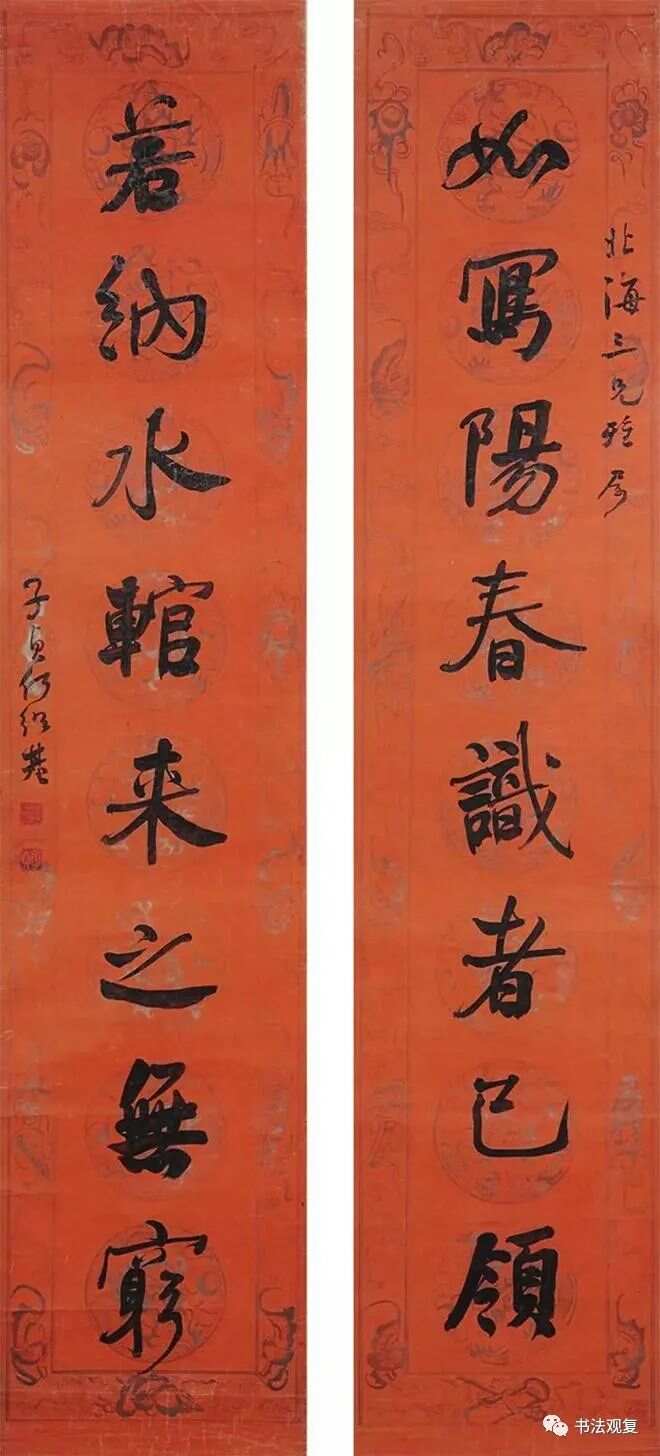 北海三兄雅屬
如寫陽春識者已領
若納水輨来之無窮
子貞何紹基
书法观复